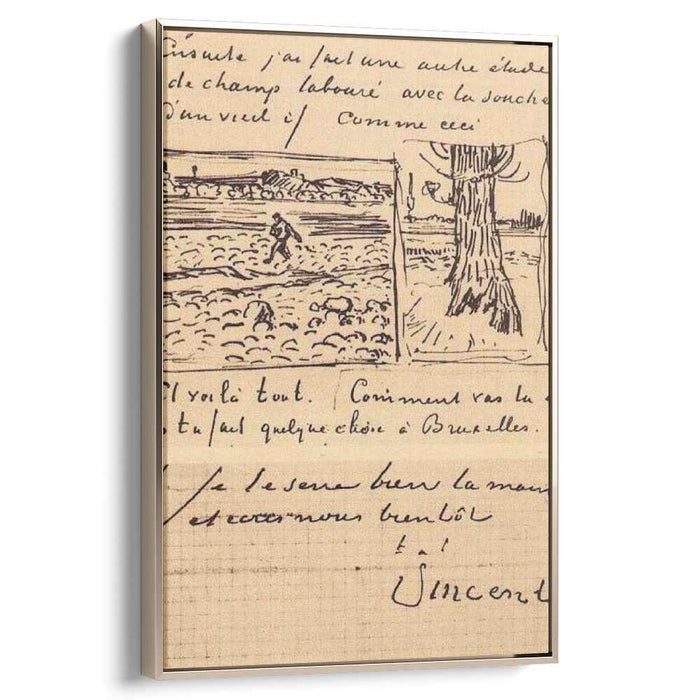 Ensuite j'ai fait une autre étude
de champ labouré avec la souche
d'un vieil if Comme ceci
Et voilà tout. Comment vas tu
tu fait quelque chose à Bruxelles.
Je te serre bien la main
et nous bientôt
t. à t.
Vincent